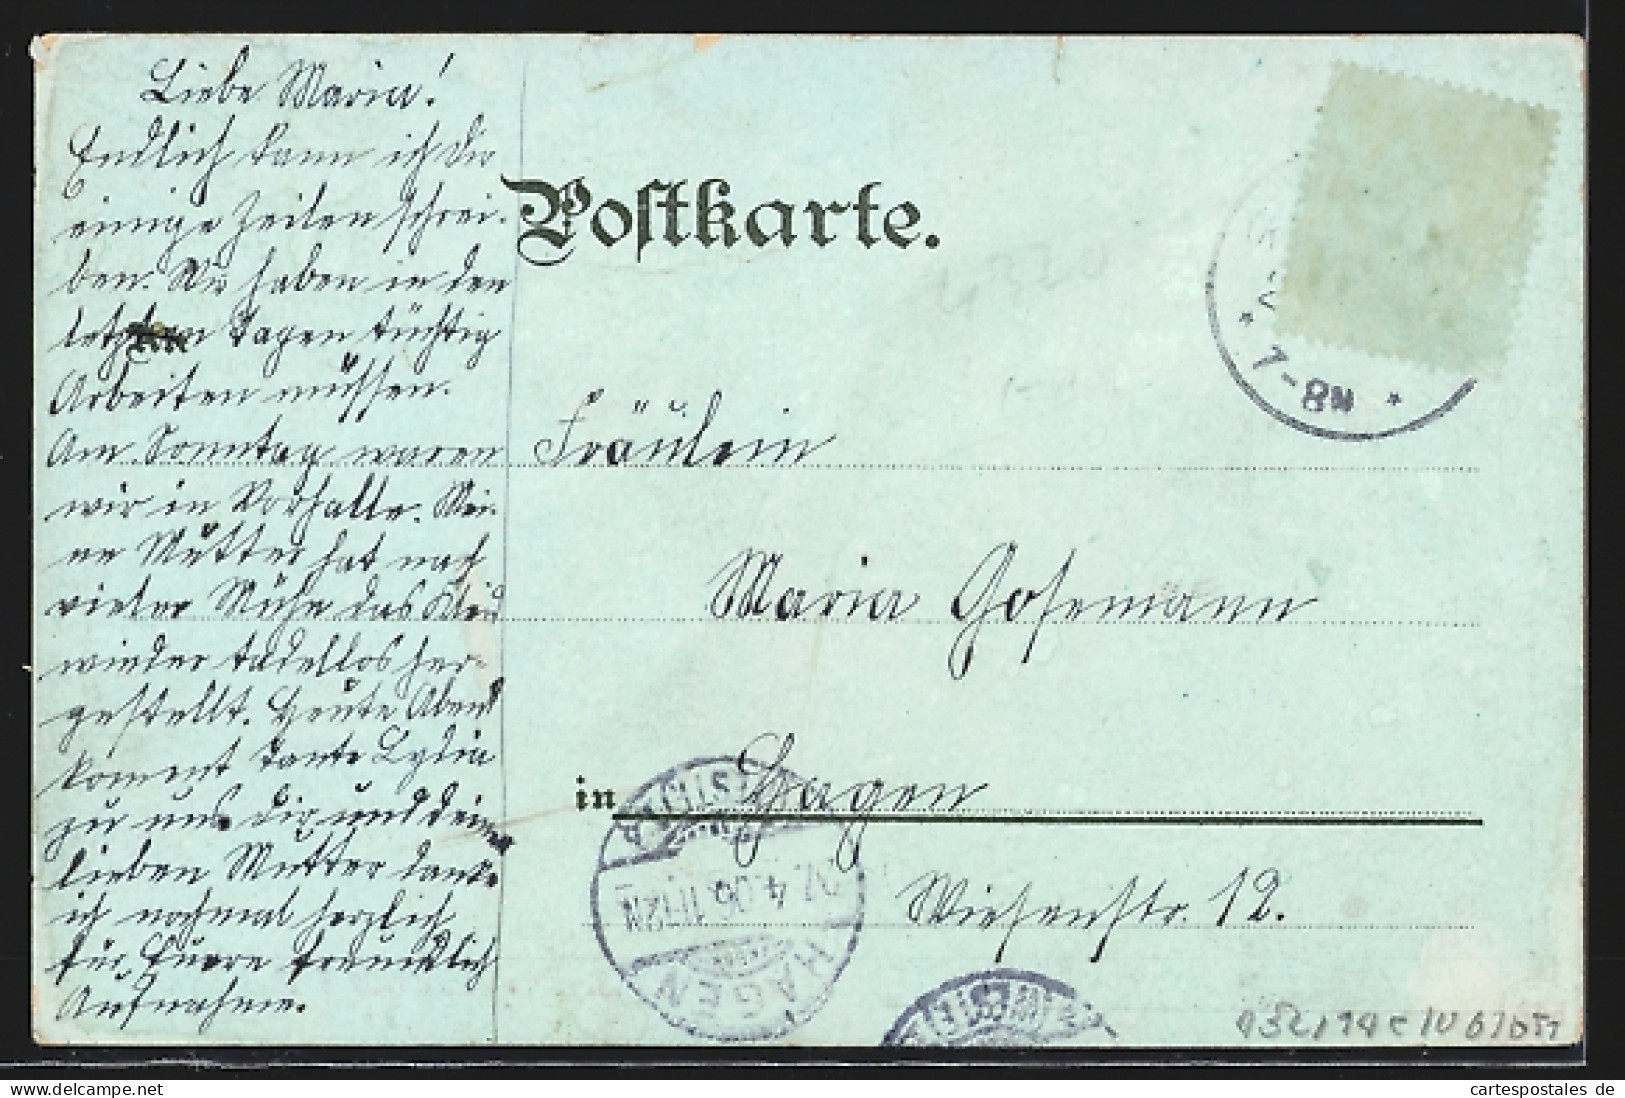 Liebe Maria!
Endlich kann ich dir
einige Zeilen schrei-
ben. Wir haben in den
letzten Tagen tüchtig
Arbeiten müssen.
Am Sonntag waren
wir in Vorhalle. Mei-
ne Mutter hat nach
vieler Mühe das Kleid
wieder tadellos her-
gestellt. Heute Abend
kommt Tante Lydia
zu uns. Dir und deiner
lieben Mutter danke
ich nochmal herzlich
für Euere freundlich
Aufnahme.
Postkarte.
7-8N
Fräulein
Maria Gosemann
in Hagen
Wiesenstr. 12.
(WESTF.)
4.06. 11-12N
HAGEN
(WESTF.)
cartespostales de